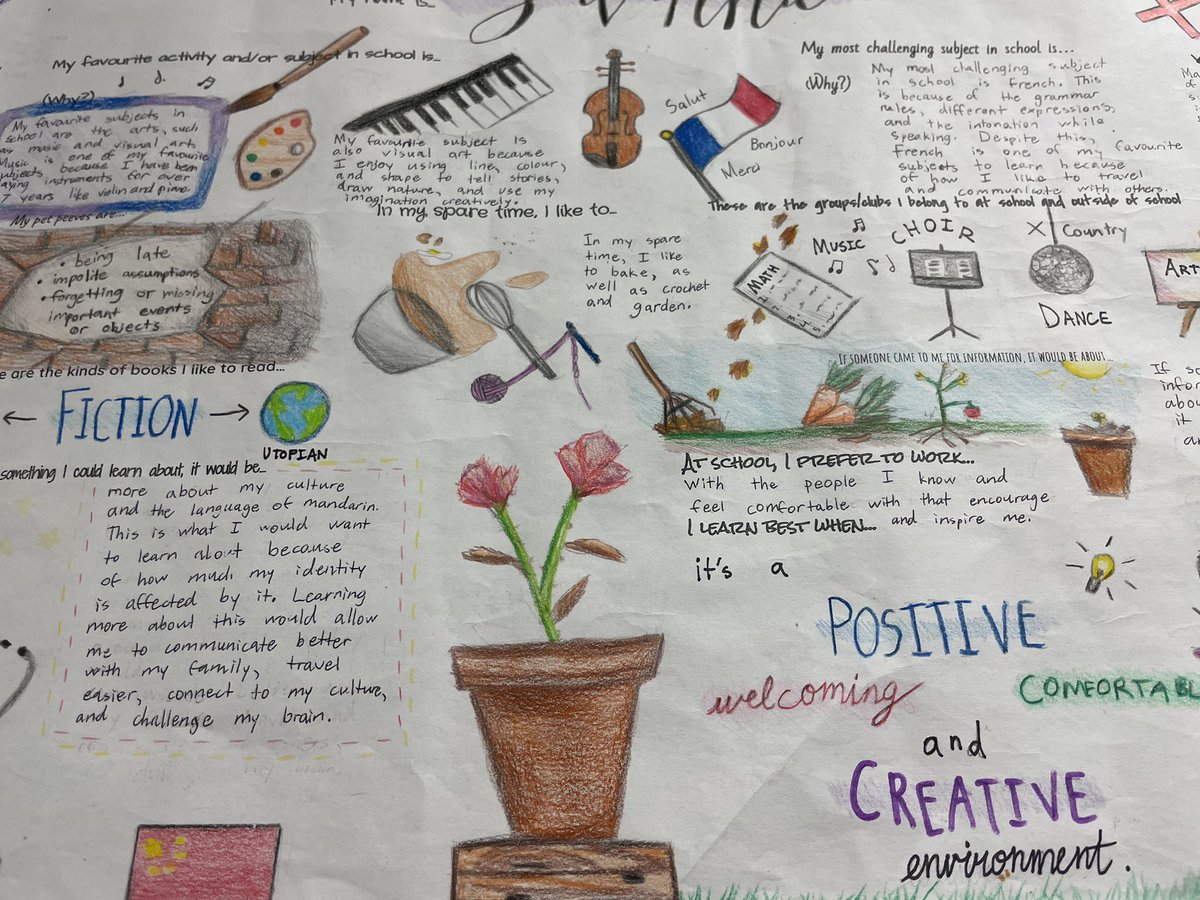 My name is...
My favourite activity and/or subject in school is...
(Why?)
My favourite subjects in
school are the arts, such
as music and visual art.
Music is one of my favourite
subjects because I have been
playing instruments for over
7 years like violin and piano.
My favourite subject is
also visual art because
I enjoy using line, colour,
and shape to tell stories,
draw nature, and use my
imagination creatively.
Salut
Bonjour
Merci
My most challenging subject in school is...
(Why?)
My most challenging subject
in school is French. This
is because of the grammar
rules, different expressions,
and the intonation while
speaking. Despite this,
French is one of my favourite
subjects to learn because
of how I like to travel
and communicate with others.
My pet peeves are...
• being late
• impolite assumptions
• forgetting or missing
important events
or objects
In my spare time, I like to...
In my spare
time, I like
to bake, as
well as crochet
and garden.
These are the groups/clubs I belong to at school and outside of school
MUSIC
CHOIR
X Country
MATH
DANCE
ART
e are the kinds of books I like to read...
FICTION
UTOPIAN
IF SOMEONE CAME TO ME FOR INFORMATION, IT WOULD BE ABOUT...
If so
infor
abou
it
an
something I could learn about, it would be...
more about my culture
and the language of mandarin.
This is what I would want
to learn about because
of how much my identity
is affected by it. Learning
more about this would allow
me to communicate better
with my family, travel
easier, connect to my culture,
and challenge my brain.
AT SCHOOL, I PREFER TO WORK...
with the people I know and
feel comfortable with that encourage
and inspire me.
I LEARN BEST WHEN...
it's a
POSITIVE
welcoming
COMFORTABL
and
CREATIVE
environment.